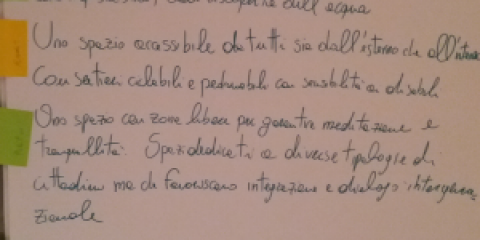 dall'acqua
Uno spazio accessibile da tutti sia dall'esterno che all'interno
Con sentieri ciclabili e pedonabili con sensibilità a disabili
Uno spazio con zone libere per garantire meditazione e
tranquillità. Spazi dedicati a diverse tipologie di
cittadini ma che favoriscano integrazione e dialogo intergenera
zionale